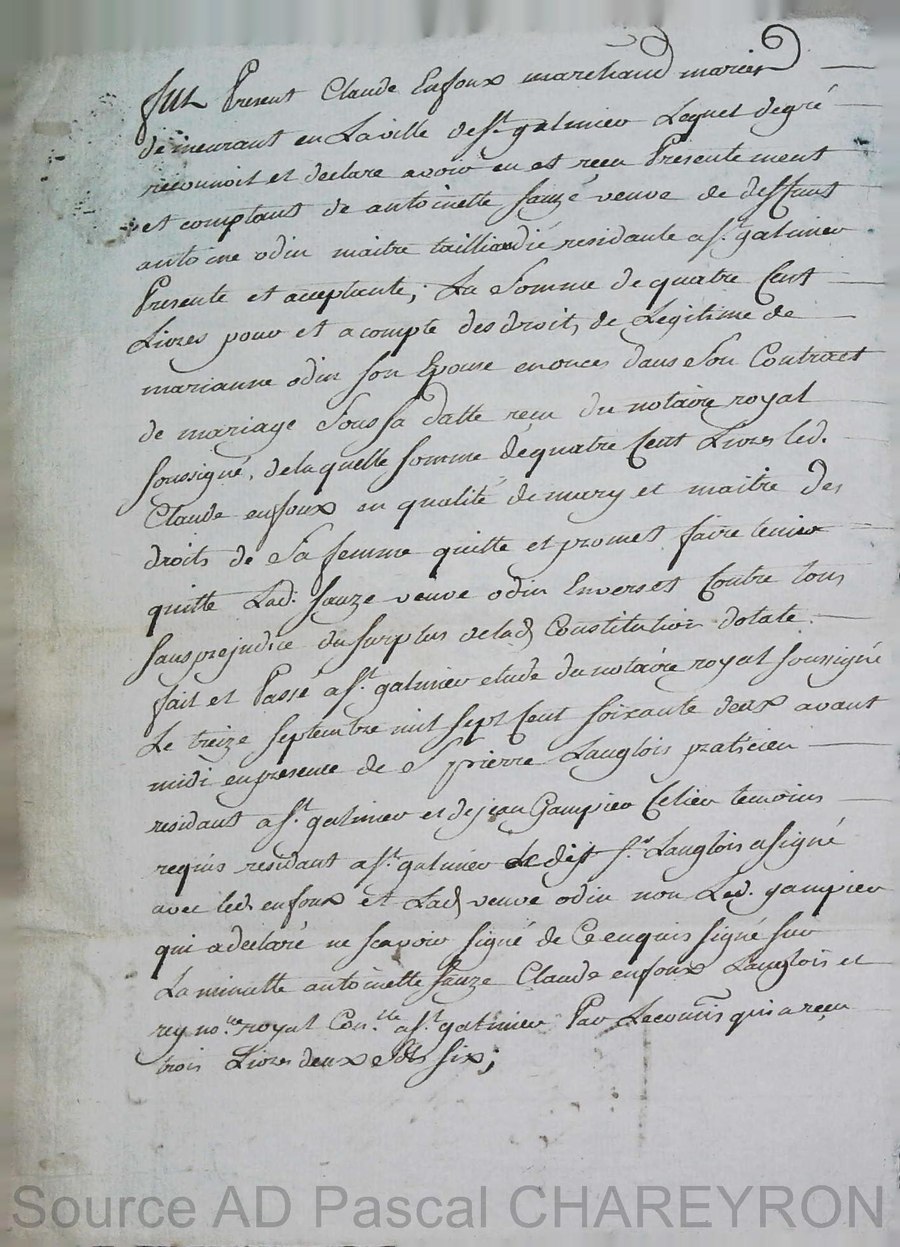 fut Present Claude Enfoux marchand mercier
demeurant en La ville de st. galmier Lequel de gré
reconnoit et declare avoir eu et receu Presentement
et comptant de antoinette sauze veuve de deffunt
antoine odin maitre tailliandié residante a st. galmier
Presente et acceptante; La Somme de quatre Cent
Livres pour et a compte des droits de Legitime de
marianne odin son Epouse enoncés dans Son Contract
de mariage Sous sa datte receu du notaire royal
soussigné, de laquelle somme de quatre Cent Livres led.
Claude enfoux en qualité de mary et maitre des
droits de Sa femme quitte et promet faire tenir
quitte Lad. sauze veuve odin Envers et Contre tous
sans prejudice du surplus de lad Constitution dotale.
fait et Passé a st. galmier etude du notaire royal soussigné
Le treize septembre mil sept Cent soixante deux avant
midi en presence de s pierre Langlois praticien
residant a st. galmier et de jean Gampier Celier temoins
requis residant a st. galmier Le dit sr. Langlois a signé
avec led. enfoux et Lad veuve odin non Led. gampier
qui a declaré ne scavoir signé de Ce enquis signé sur
La minutte antoinette sauze Claude enfoux Langlois et
rey no.re royal Con.lle a st. galmier Par Lecomis qui a receu
trois Livres deux sols six;
Source AD Pascal CHAREYRON